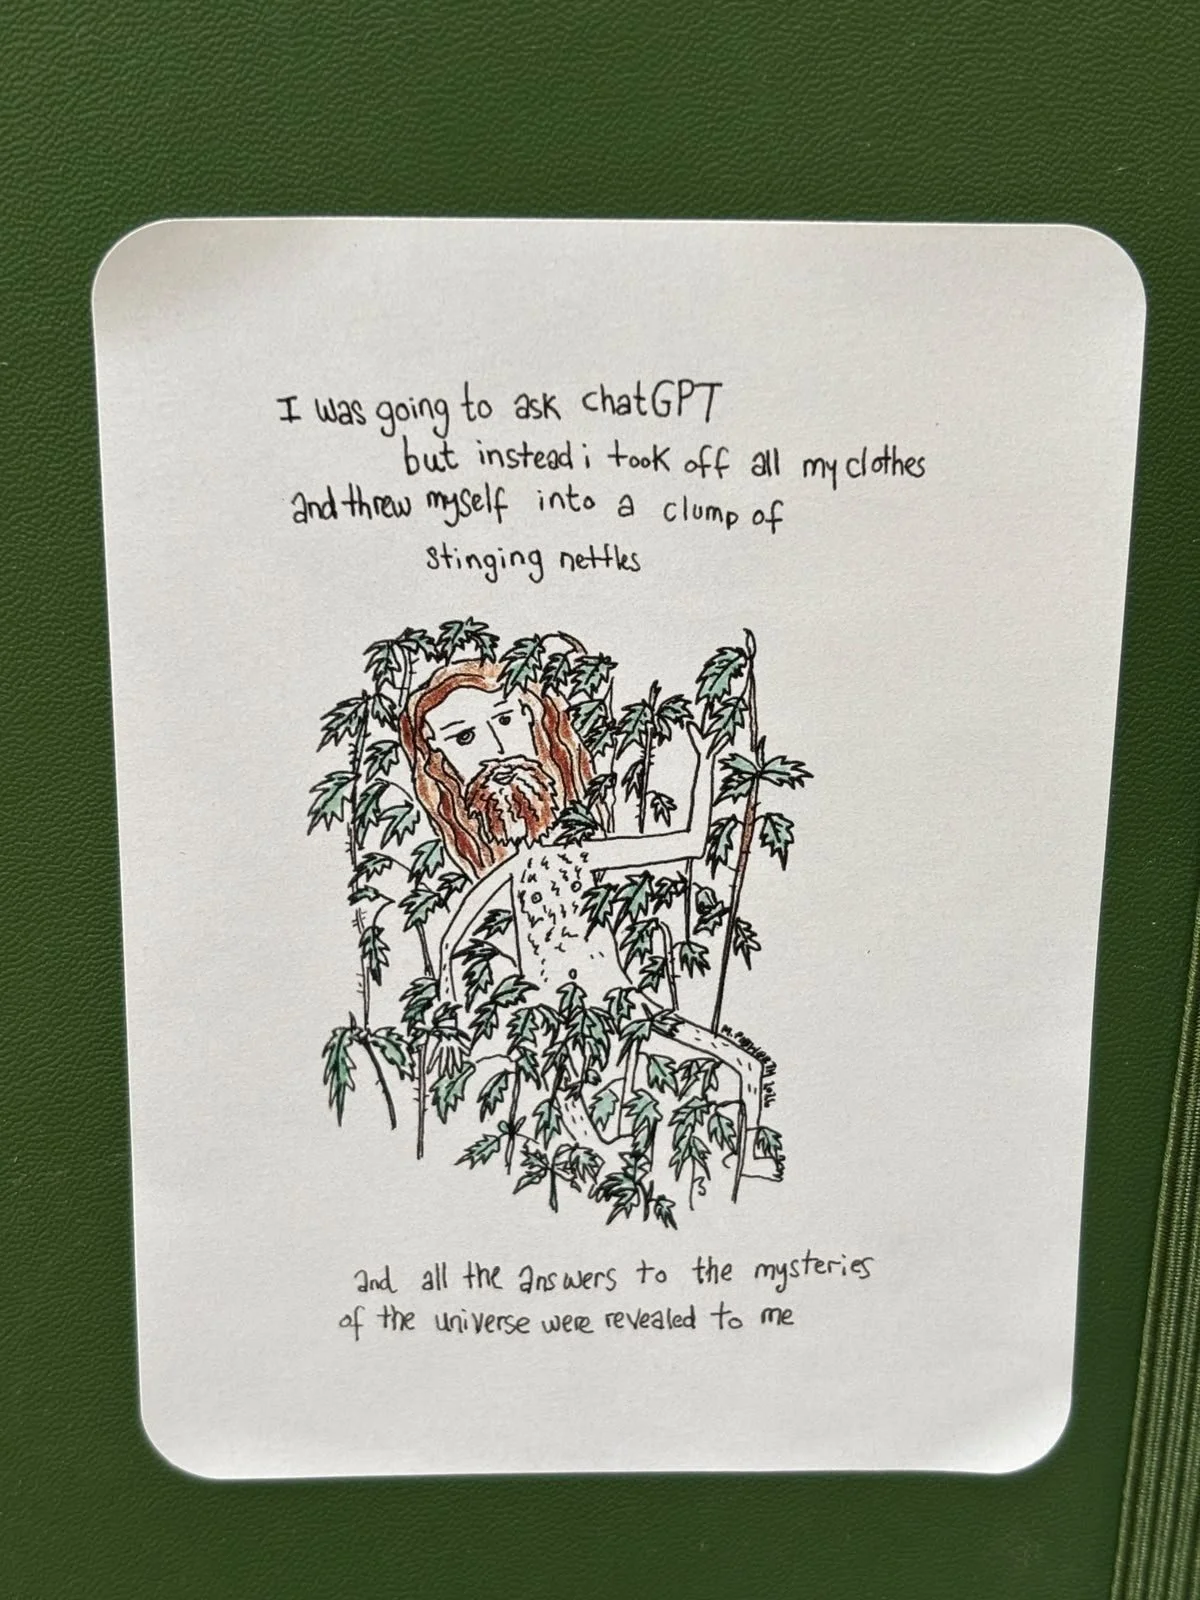 I was going to ask chatGPT
but instead i took off all my clothes
and threw myself into a clump of
stinging nettles
2026
and all the answers to the mysteries
of the universe were revealed to me